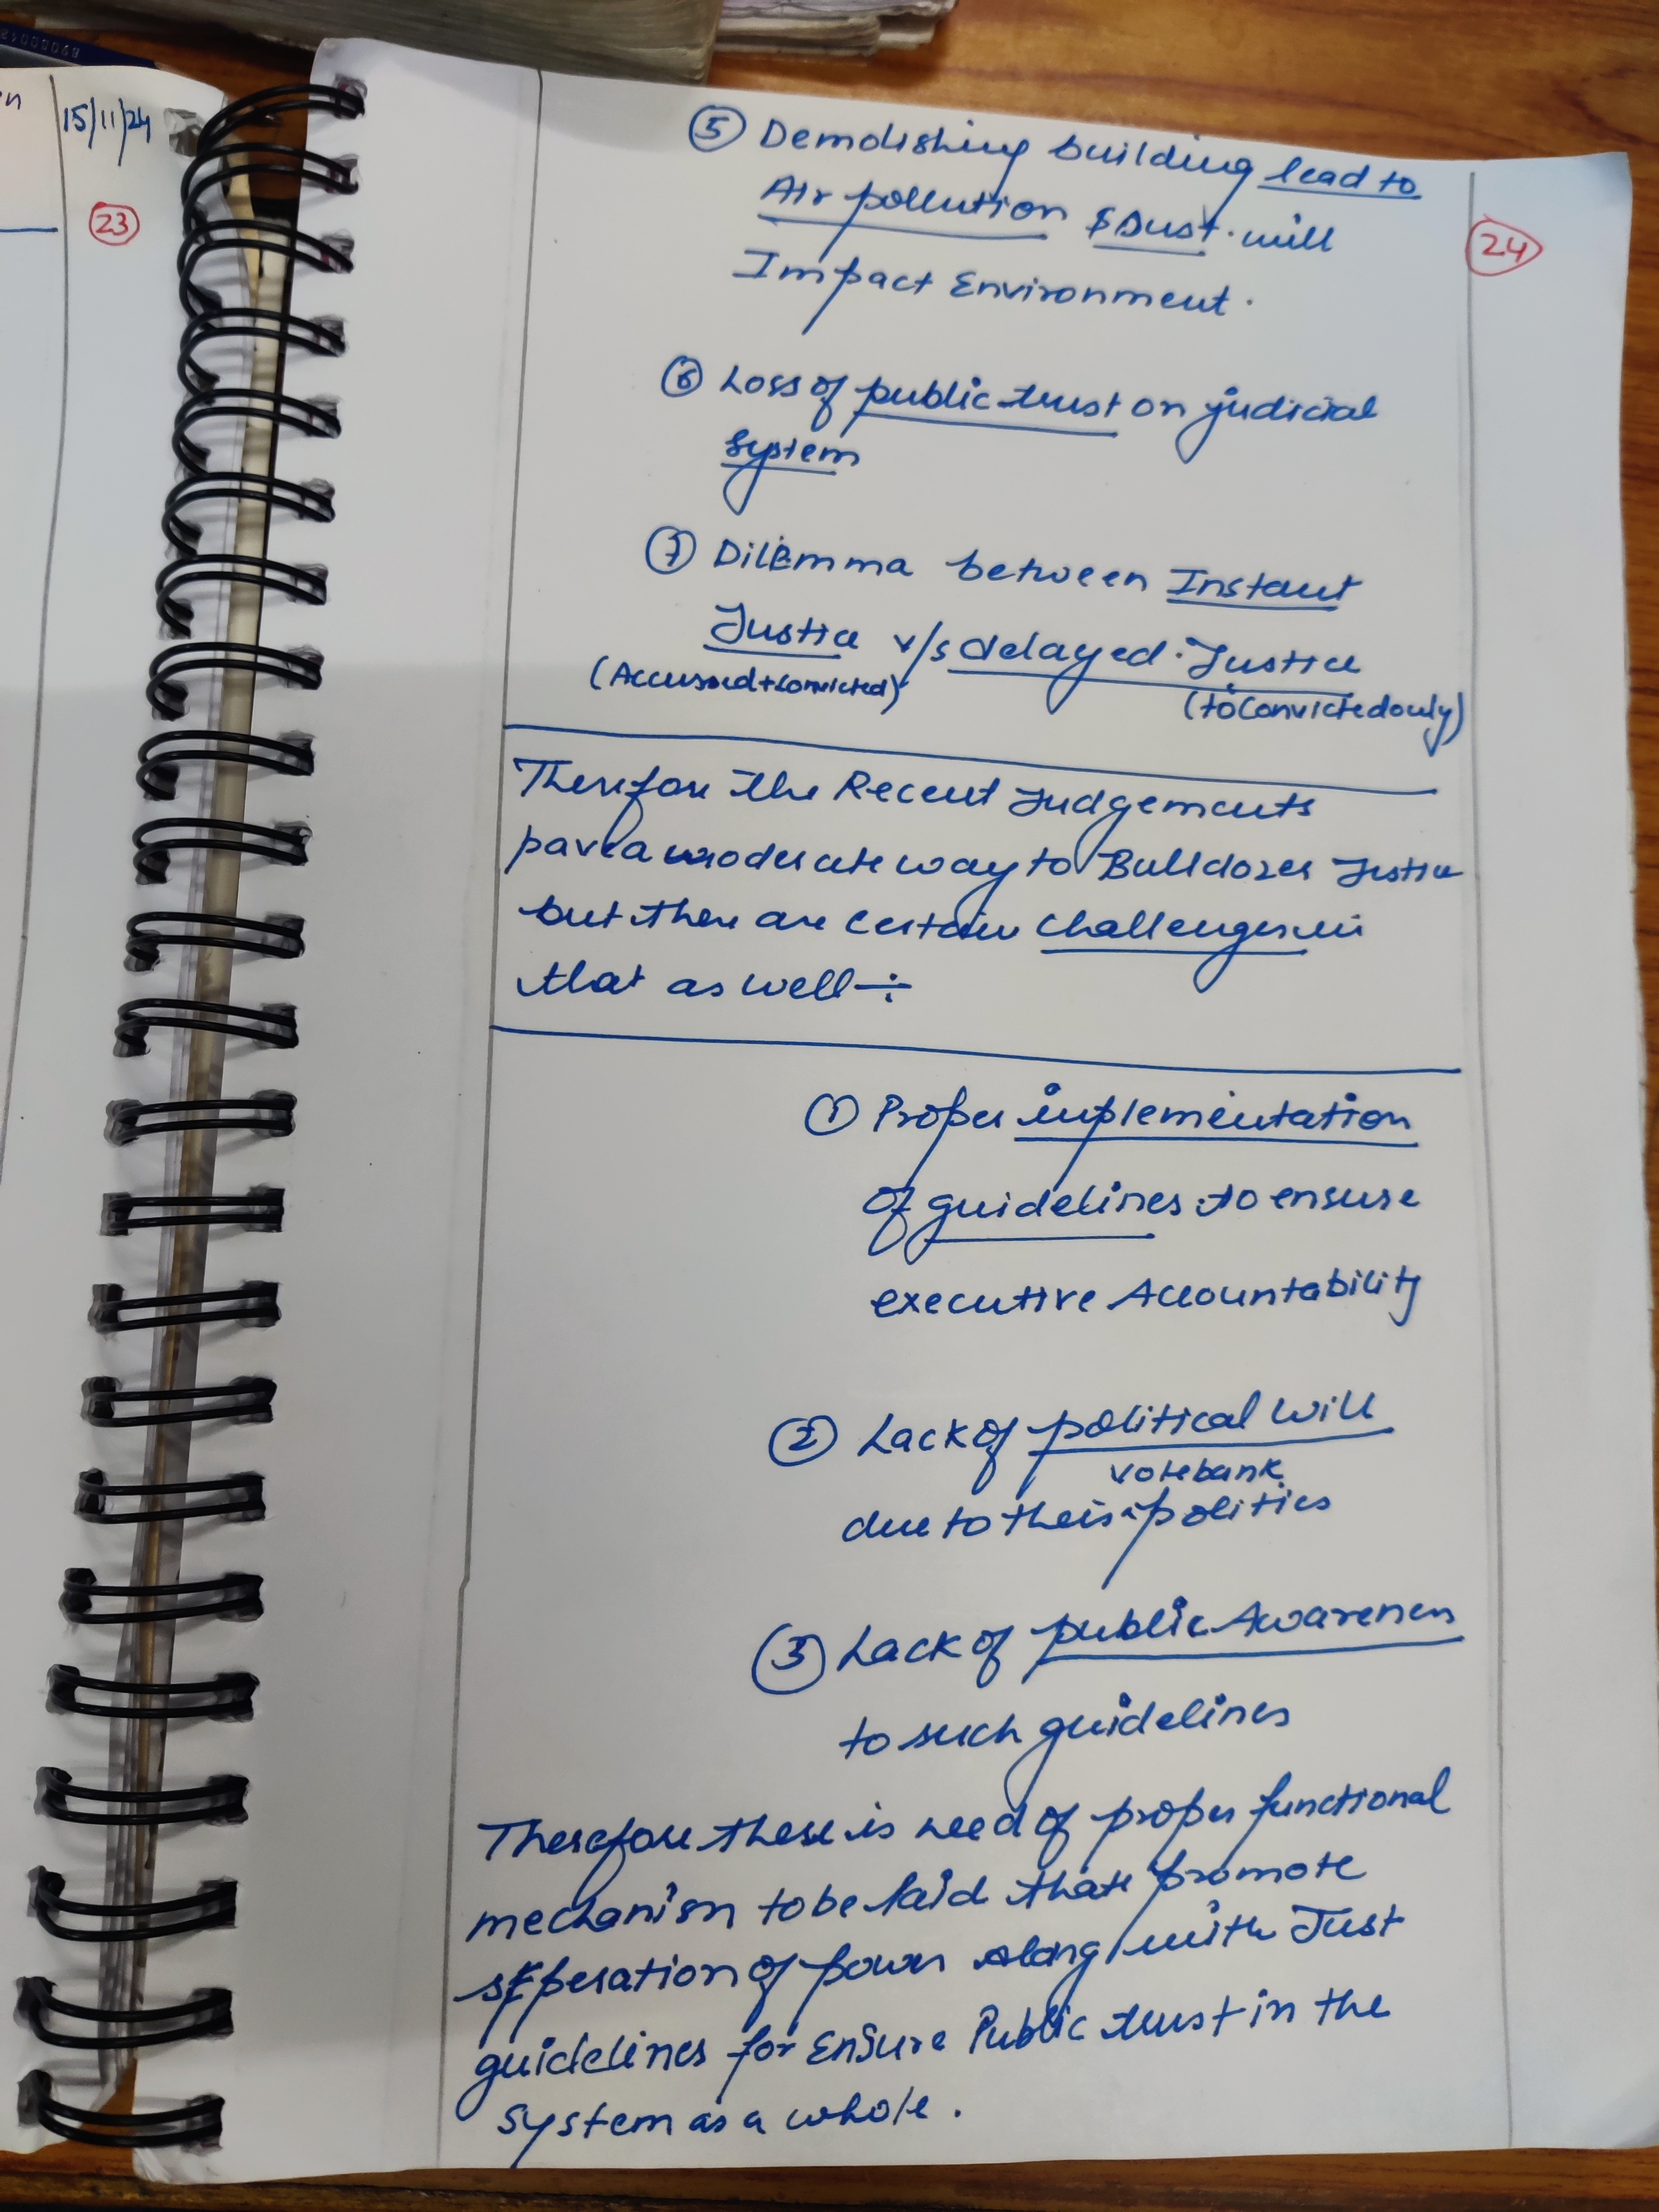 15/11/24
23
24
⑤ Demolishing building lead to
Air pollution & Dust. will
Impact Environment.
⑥ Loss of public trust on judicial
system
⑦ Dilemma between Instant
Justice v/s delayed. Justice
(Accussed + convicted) (to convicted only)
Therefore the Recent Judgements
pave a moderate way to Bulldozer Justice
but there are certain challenges in
that as well ÷
① Proper implementation
of guidelines to ensure
executive Accountability
② Lack of political will
votebank
due to their politics
③ Lack of public Awareness
to such guidelines
Therefore there is need of proper functional
mechanism to be laid that promote
seperation of power along with Just
guidelines for Ensure Public trust in the
system as a whole.